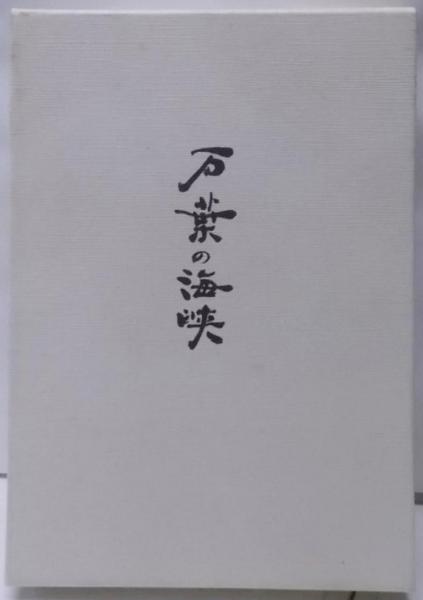 万葉の海峡